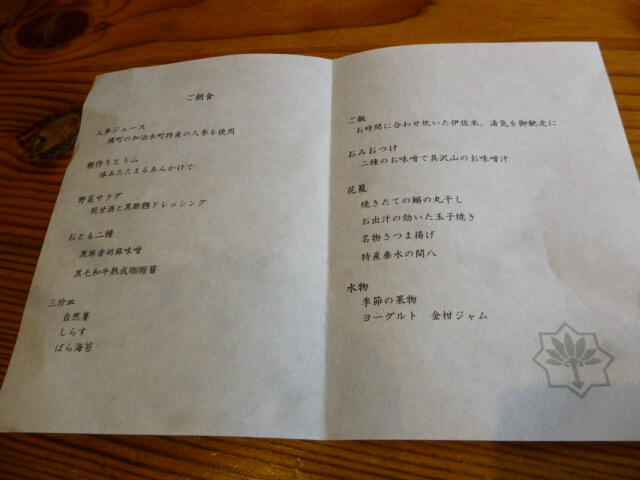 ご朝食
人参ジュース
隣町の加治木町特産の人参を使用
朝作りとうふ
体あたたまるあんかけで
野菜サラダ
糀甘酒と黒酢麹ドレッシング
おとも二種
黒豚香胡麻味噌
黒毛和牛熟成咖喱醤
三珍皿
自然薯
しらす
ばら海苔
ご飯
お時間に合わせ炊いた伊佐米、湯気を御馳走に
おみおつけ
二種のお味噌で具沢山のお味噌汁
花籠
焼きたての鰯の丸干し
お出汁の効いた玉子焼き
名物さつま揚げ
特産垂水の間八
水物
季節の果物
ヨーグルト 金柑ジャム